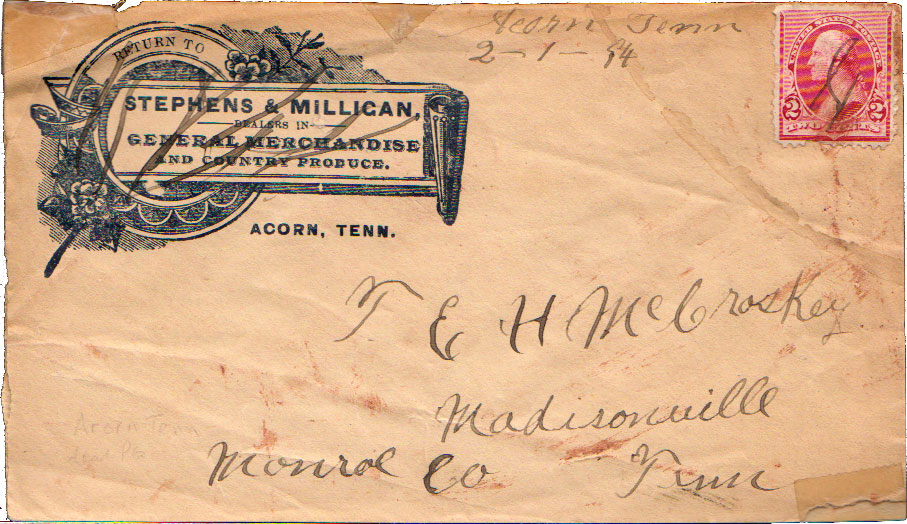 Acorn Tenn
2-1-94
RETURN TO
STEPHENS & MILLIGAN,
DEALERS IN
GENERAL MERCHANDISE
AND COUNTRY PRODUCE.
ACORN, TENN.
UNITED STATES POSTAGE
2 2
T E H McCroskey
Madisonville
Monroe Co Tenn
Acorn Te